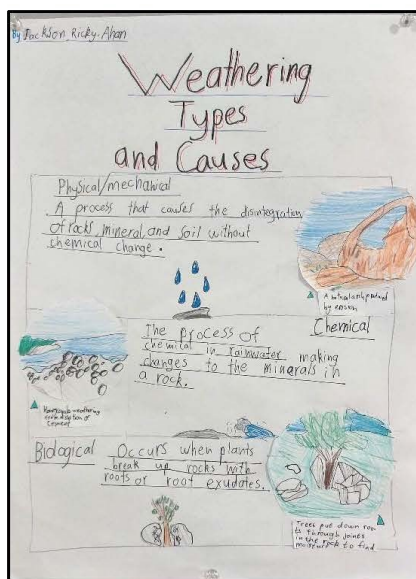 By Jackson, Ricky, Ahan
Weathering
Types
and Causes
Physical/mechanical
A process that causes the disintegration
of rocks, mineral, and soil without
chemical change.
A natural arch produced
by erosion
The process of
Chemical
chemical in rainwater making
changes to the minerals in
a rock.
weathering
cement
Biological
Occurs when plants
break up rocks with
roots or root exudates.
Trees put down roo
ts through joines
in the rock to find